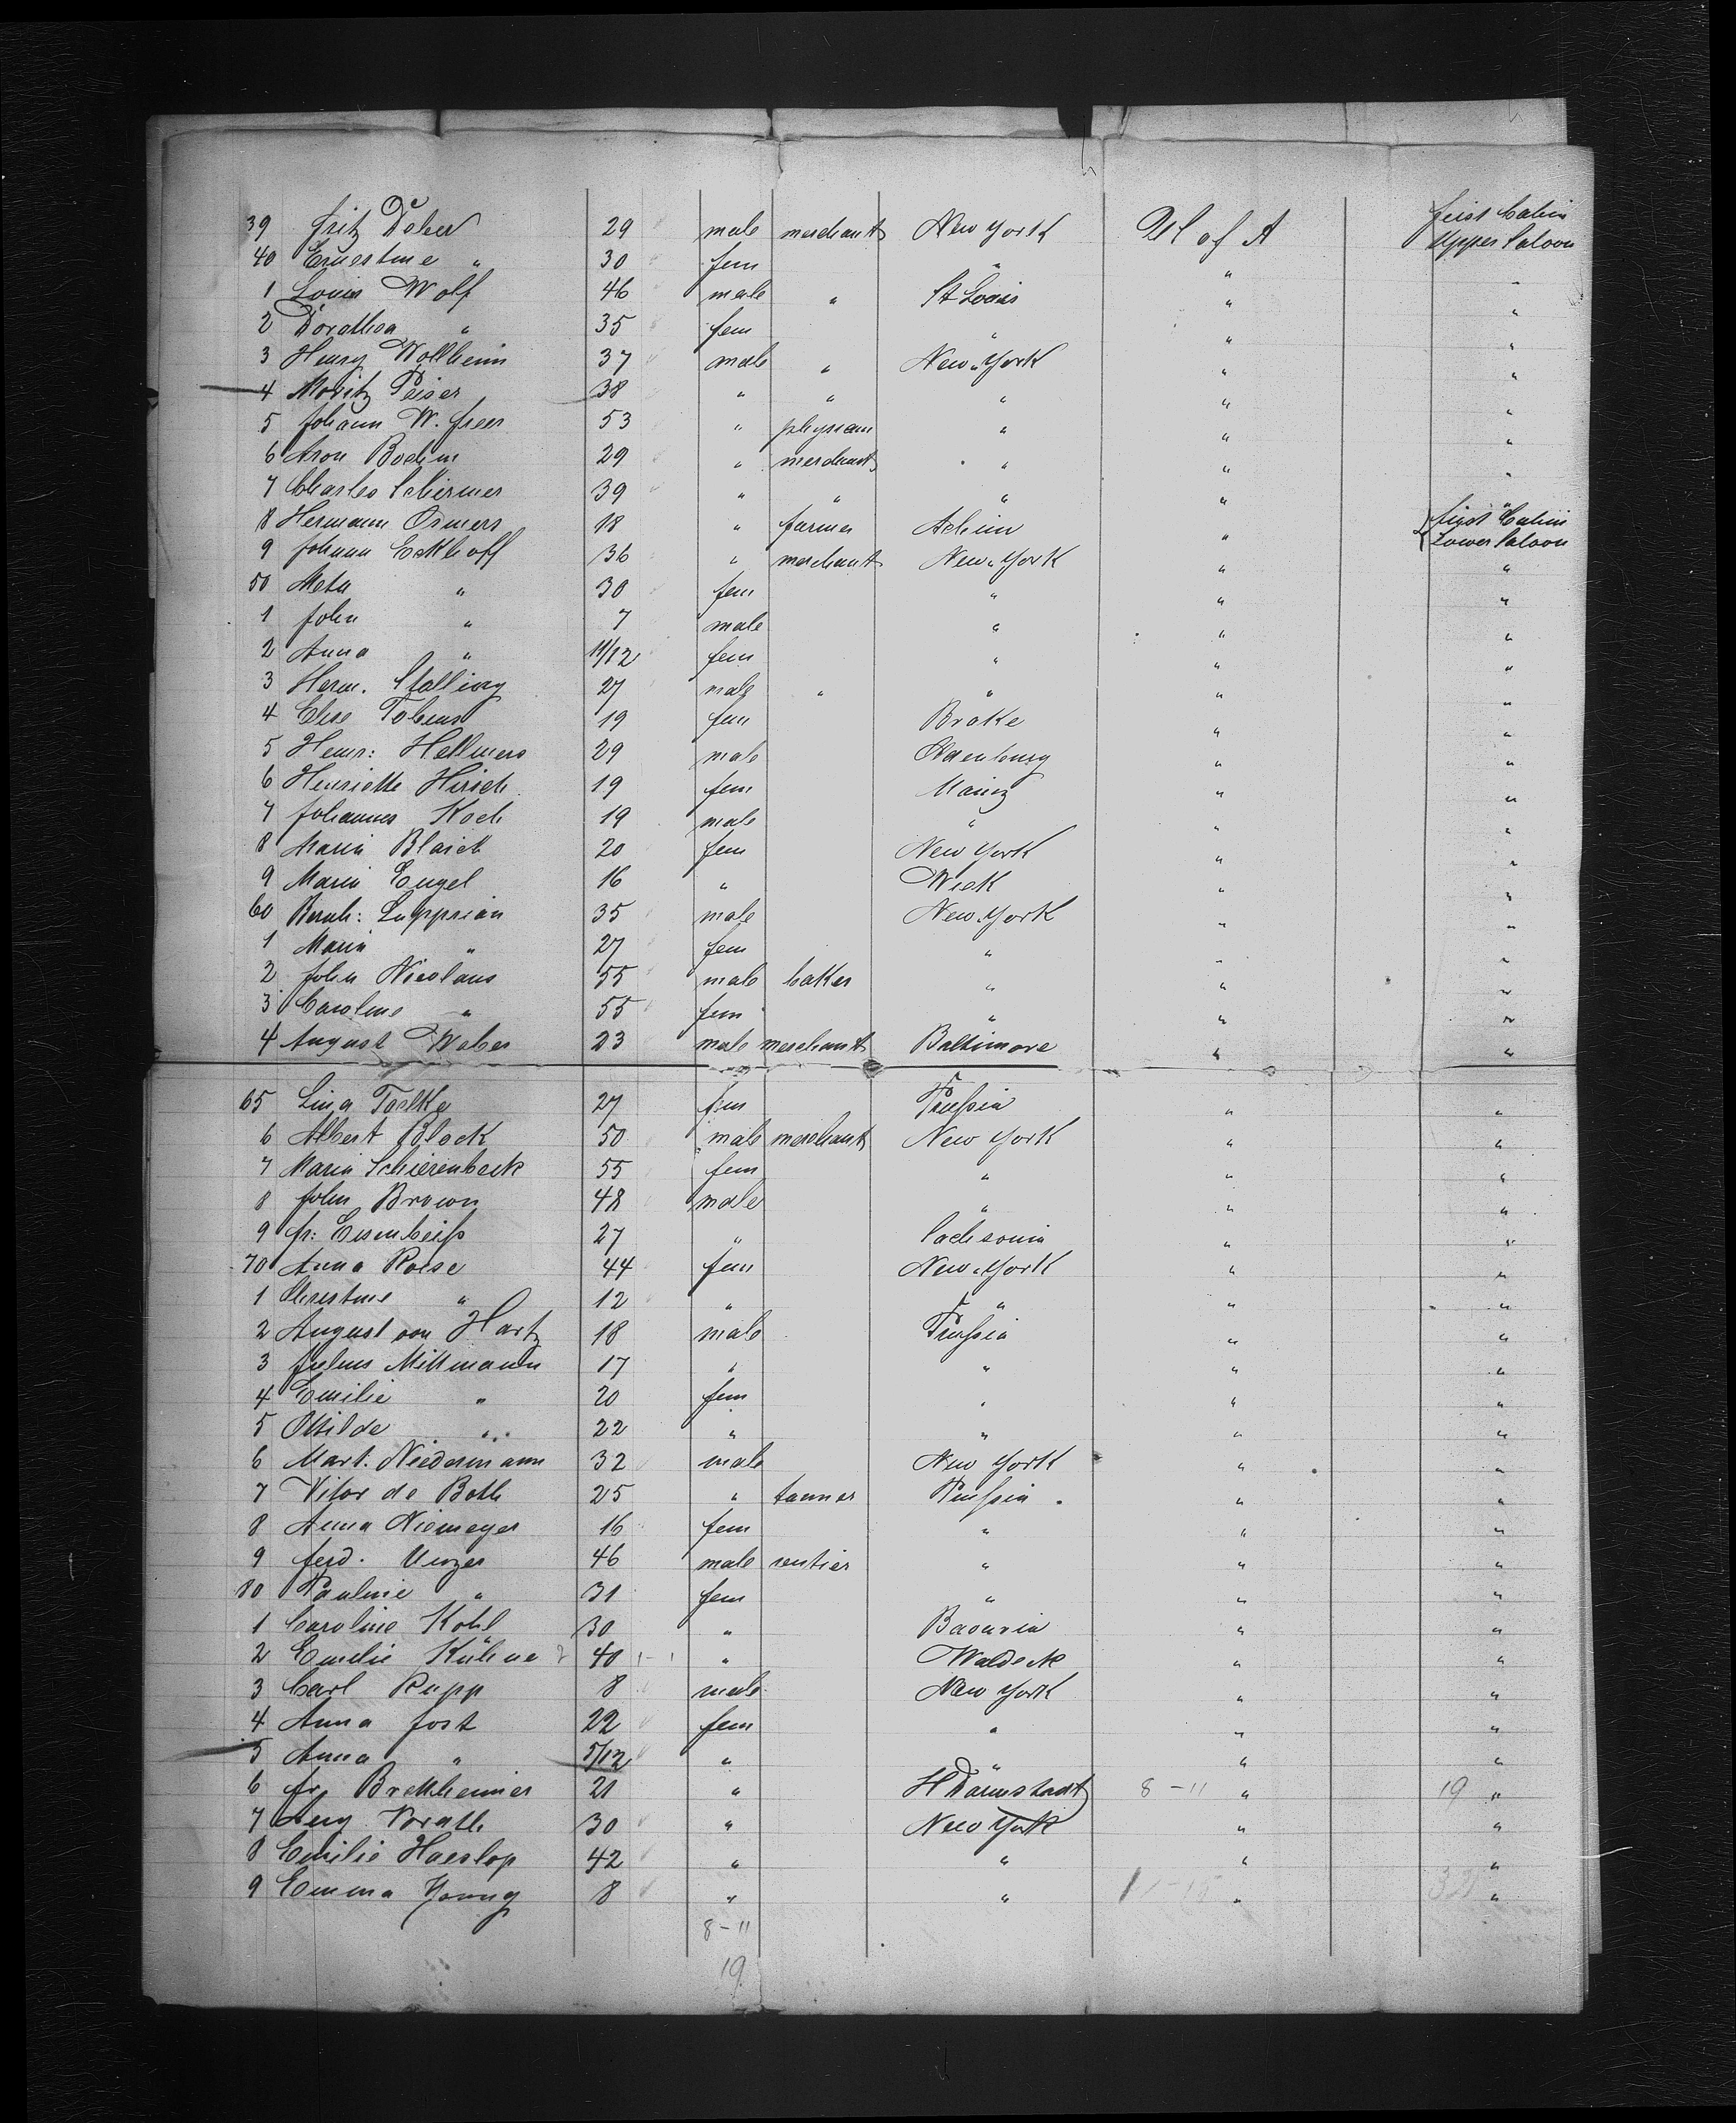 First Cabin
39 Fritz Deber 29 male merchant New York U S of A Upper Saloon
40 Ernestine " 30 fem " " "
1 Louis Wolf 46 male " St Louis " "
2 Dorothea " 35 fem " " "
3 Henry Wollheim 37 male " New York " "
4 Moritz Peiser 38 " " " " "
5 Johann W. Freer 53 " physican " " "
6 Aron Boehm 29 " merchant " " "
7 Charles Schirmer 39 " " " " "
8 Hermann Osmers 18 " farmer Achim " First Cabin Lower Saloon
9 Johann Eckhoff 36 " merchant New York " "
50 Meta " 30 fem " " "
1 John " 7 male " " "
2 Anna " 11/12 fem " " "
3 Herm. Stalling 27 male " " " "
4 Elise Tobias 19 fem Brake " "
5 Heinr: Hellmers 29 male Oldenburg " "
6 Henriette Hirsch 19 fem Mainz " "
7 Johannes Koch 19 male " " "
8 Maria Blaich 20 fem New York " "
9 Maria Engel 16 " Wiek " "
60 Bernh: Lupprian 35 male New York " "
1 Maria " 27 fem " " "
2 John Nicolaus 55 male baker " " "
3 Caroline " 55 fem " " "
4 August Weber 23 male merchant Baltimore " "
65 Lina Toelke 27 fem Prussia " "
6 Albert Block 50 male merchant New York " "
7 Maria Schierenbeck 55 fem " " "
8 John Brown 48 male " " "
9 Fr: Eisenbeiss 27 " Sachsonia " "
70 Anna Roese 44 fem New York " "
1 Christine " 12 " " " "
2 August von Hartz 18 male Prussia " "
3 Julius Mittmann 17 " " " "
4 Emilie " 20 fem " " "
5 Ottilde " 22 " " " "
6 Mart. Niedermann 32 male New York " "
7 Vitor de Both 25 " tanner Prussia " "
8 Anna Niemeyer 16 fem " " "
9 Ferd. Unger 46 male rentier " " "
80 Pauline " 31 fem " " "
1 Caroline Kohl 30 " Bavaria " "
2 Emilie Kühne 40 " Waldeck " "
3 Carl Rupp 8 male New York " "
4 Anna Jost 22 fem " " "
5 Anna " 5/12 " " " "
6 Fr. Brekheimer 21 " H Darmstadt 8-11 " 19 "
7 Aug Vorath 30 " New York " "
8 Emilie Haeslop 42 " " " "
9 Emma Young 8 " " " "
8-11
19